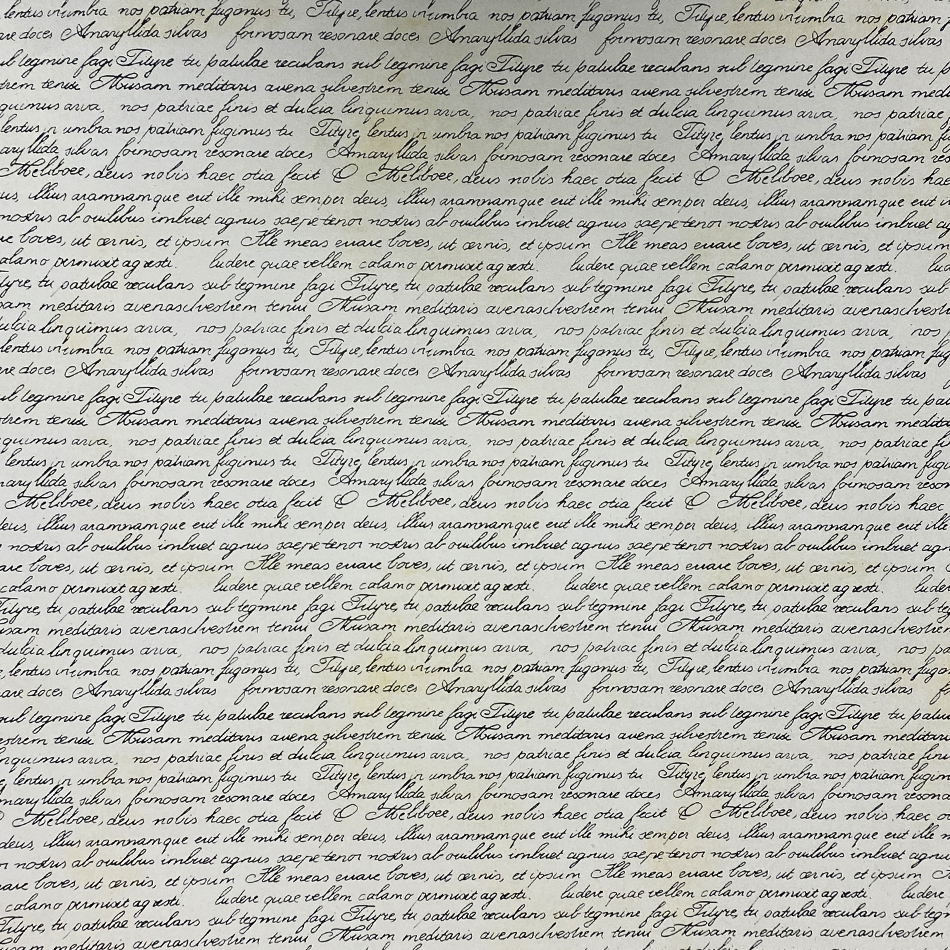 lentus in umbra nos patriam fugimus tu, Tityre, lentus in umbra nos patriam fugimus tu, Tityre, lentus in umbra nos patriam
doces Amaryllida silvas formosam resonare doces Amaryllida silvas formosam resonare doces Amaryllida silvas
sub tegmine fagi Tityre tu patulae recubans sub tegmine fagi Tityre tu patulae recubans sub tegmine fagi Tityre tu
tenui Musam meditaris avena silvestrem tenui Musam meditaris avena silvestrem tenui Musam
arva, nos patriae finis et dulcia linquimus arva, nos patriae finis et dulcia linquimus arva, nos patriae
lentus in umbra nos patriam fugimus tu Tityre, lentus in umbra nos patriam fugimus tu Tityre, lentus in umbra nos patriam
silvas formosam resonare doces Amaryllida silvas formosam resonare doces Amaryllida silvas formosam
Meliboee, deus nobis haec otia fecit O Meliboee, deus nobis haec otia fecit O Meliboee, deus nobis
illius aramnamque erit ille mihi semper deus, illius aramnamque erit ille mihi semper deus, illius aramnamque erit
nostris ab ovilibus imbuet agnus saepe tener nostris ab ovilibus imbuet agnus saepe tener nostris ab ovilibus imbuet
boves, ut cernis, et ipsum Ille meas errare boves, ut cernis, et ipsum Ille meas errare boves, ut cernis, et ipsum
permisit agresti. ludere quae vellem calamo permisit agresti. ludere quae vellem calamo permisit agresti.
tu patulae recubans sub tegmine fagi Tityre, tu patulae recubans sub tegmine fagi Tityre, tu patulae recubans sub
meditaris avena silvestrem tenui Musam meditaris avena silvestrem tenui Musam meditaris avena
linquimus arva, nos patriae finis et dulcia linquimus arva, nos patriae finis et dulcia linquimus arva, nos
lentus in umbra nos patriam fugimus tu, Tityre, lentus in umbra nos patriam fugimus tu, Tityre, lentus in umbra nos patriam
doces Amaryllida silvas formosam resonare doces Amaryllida silvas formosam resonare doces Amaryllida silvas
sub tegmine fagi Tityre tu patulae recubans sub tegmine fagi Tityre tu patulae recubans sub tegmine fagi Tityre tu
tenui Musam meditaris avena silvestrem tenui Musam meditaris avena silvestrem tenui Musam
arva, nos patriae finis et dulcia linquimus arva, nos patriae finis et dulcia linquimus arva, nos patriae
lentus in umbra nos patriam fugimus tu Tityre, lentus in umbra nos patriam fugimus tu Tityre, lentus in umbra nos patriam
silvas formosam resonare doces Amaryllida silvas formosam resonare doces Amaryllida silvas formosam
Meliboee, deus nobis haec otia fecit O Meliboee, deus nobis haec otia fecit O Meliboee, deus nobis haec
illius aramnamque erit ille mihi semper deus, illius aramnamque erit ille mihi semper deus, illius aramnamque erit ille
nostris ab ovilibus imbuet agnus saepe tener nostris ab ovilibus imbuet agnus saepe tener nostris ab ovilibus imbuet
boves, ut cernis, et ipsum Ille meas errare boves, ut cernis, et ipsum Ille meas errare boves, ut cernis, et ipsum
calamo permisit agresti. ludere quae vellem calamo permisit agresti. ludere quae vellem calamo permisit agresti.
tu patulae recubans sub tegmine fagi Tityre, tu patulae recubans sub tegmine fagi Tityre, tu patulae recubans sub
meditaris avena silvestrem tenui Musam meditaris avena silvestrem tenui Musam meditaris avena silvestrem
linquimus arva, nos patriae finis et dulcia linquimus arva, nos patriae finis et dulcia linquimus arva, nos
lentus in umbra nos patriam fugimus tu, Tityre, lentus in umbra nos patriam fugimus tu, Tityre, lentus in umbra nos patriam
doces Amaryllida silvas formosam resonare doces Amaryllida silvas formosam resonare doces Amaryllida silvas
sub tegmine fagi Tityre tu patulae recubans sub tegmine fagi Tityre tu patulae recubans sub tegmine fagi Tityre tu
tenui Musam meditaris avena silvestrem tenui Musam meditaris avena silvestrem tenui Musam meditaris
arva, nos patriae finis et dulcia linquimus arva, nos patriae finis et dulcia linquimus arva, nos patriae
lentus in umbra nos patriam fugimus tu Tityre, lentus in umbra nos patriam fugimus tu Tityre, lentus in umbra nos patriam
silvas formosam resonare doces Amaryllida silvas formosam resonare doces Amaryllida silvas formosam
O Meliboee, deus nobis haec otia fecit O Meliboee, deus nobis haec otia fecit O Meliboee, deus nobis haec
deus, illius aramnamque erit ille mihi semper deus, illius aramnamque erit ille mihi semper deus, illius aramnamque erit ille
nostris ab ovilibus imbuet agnus saepe tener nostris ab ovilibus imbuet agnus saepe tener nostris ab ovilibus imbuet
boves, ut cernis, et ipsum Ille meas errare boves, ut cernis, et ipsum Ille meas errare boves, ut cernis, et ipsum
calamo permisit agresti. ludere quae vellem calamo permisit agresti. ludere quae vellem calamo permisit agresti. ludere
Tityre, tu patulae recubans sub tegmine fagi Tityre, tu patulae recubans sub tegmine fagi Tityre, tu patulae recubans sub
meditaris avena silvestrem tenui Musam meditaris avena silvestrem tenui Musam meditaris avena silvestrem